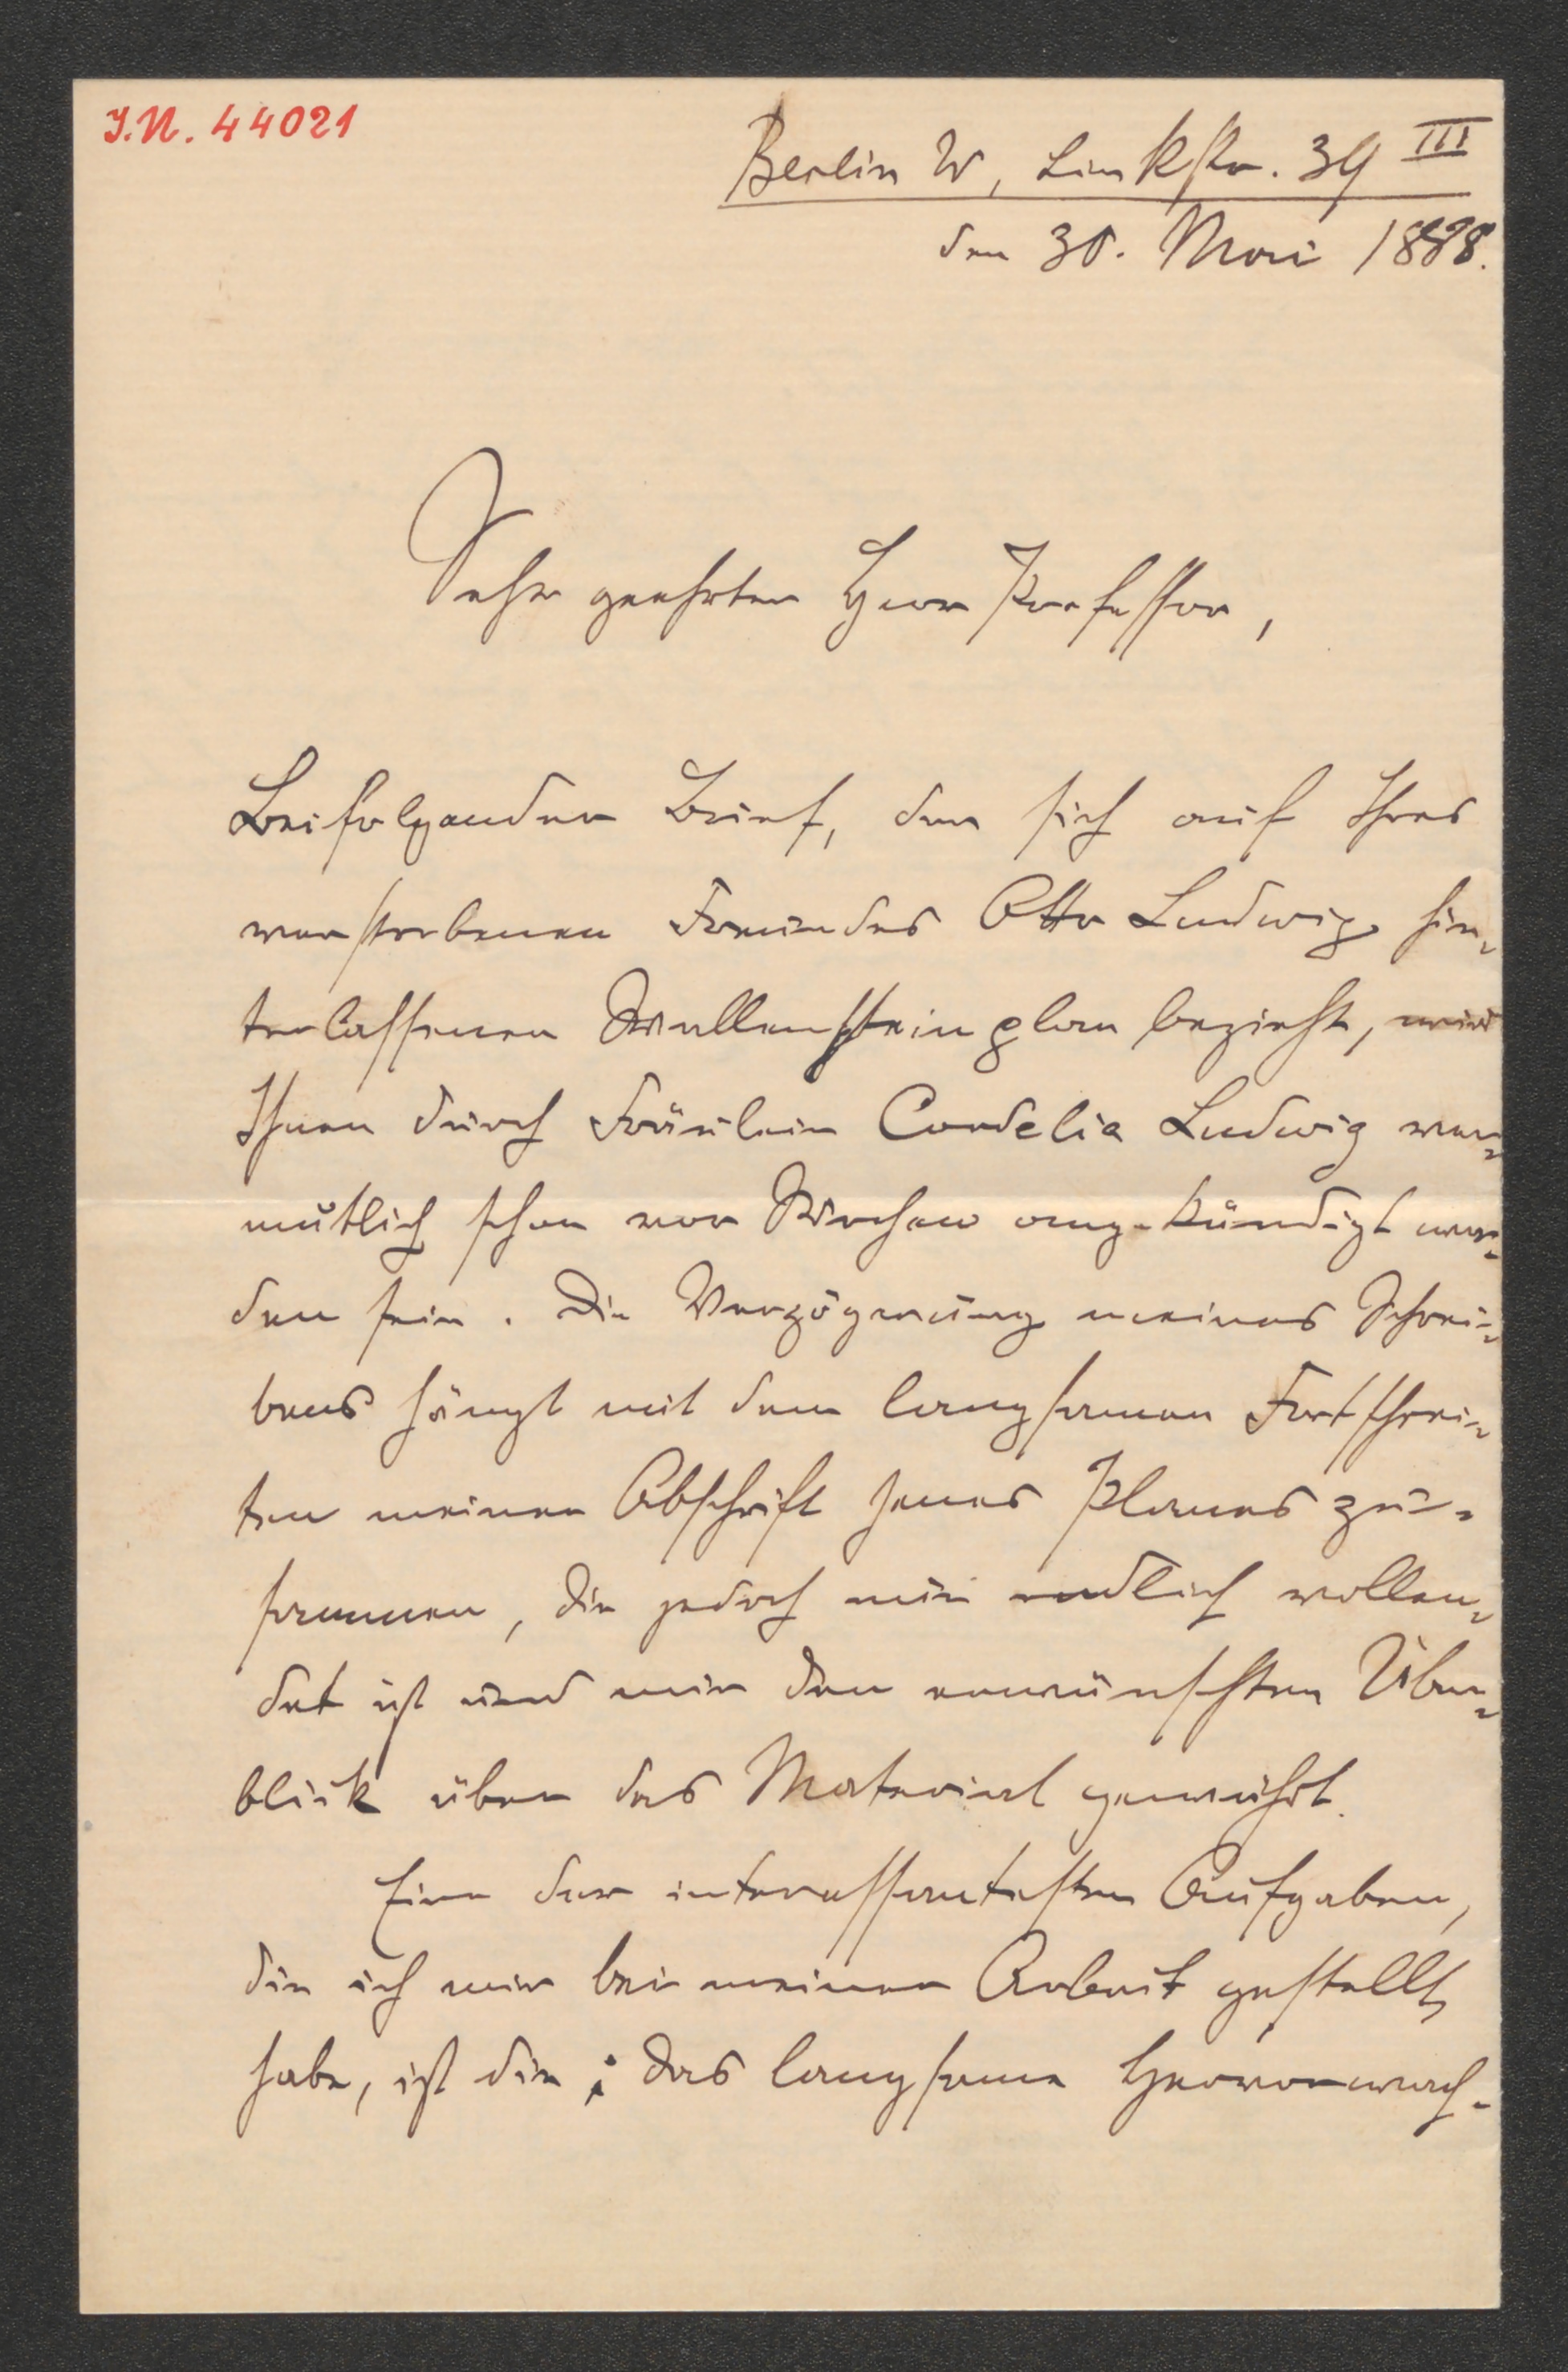 J.N. 44021
Berlin W, Linkstr. 39 III
den 30. Mai 1888.
Sehr geehrter Herr Professor,
Beifolgender Brief, der sich auf Ihres
verstorbenen Freundes Otto Ludwig hin-
terlassenen Wallensteinplan bezieht, wird
Ihnen durch Fräulein Cordelia Ludwig ver-
mutlich schon vor Wochen angekündigt wor-
den sein. Die Verzögerung meines Schrei-
bens hängt mit dem langsamen Fortschrei-
ten meiner Abschrift jenes Planes zu-
sammen, die jedoch nun endlich vollen-
det ist und mir den erwünschten Über-
blick über das Material gewährt.
Eine der interessantesten Aufgaben,
die ich mir bei meiner Arbeit gestellt
habe, ist die: das langsame Hervorwach-